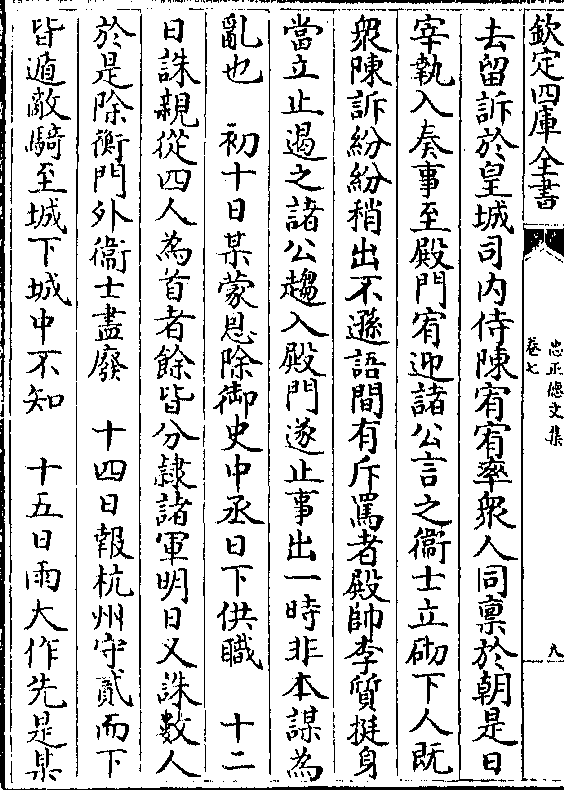 欽定四庫全書
忠正德文集
卷七
九
去留訴於皇城司内侍陳宥宥率衆人同禀於朝是日
宰執入奏事至殿門宥迎諸公言之衞士立砌下人既
衆陳訴紛紛稍出不遜語間有斥罵者殿帥李質挺身
當立止遏之諸公趨入殿門遂止事出一時非本謀為
亂也　初十日某蒙恩除御史中丞日下供職　十二
日誅親從四人為首者餘皆分隷諸軍明日又誅數人
於是除衡門外衞士盡廢　十四日報杭州守貳而下
皆遁敵騎至城下城中不知　十五日雨大作先是某